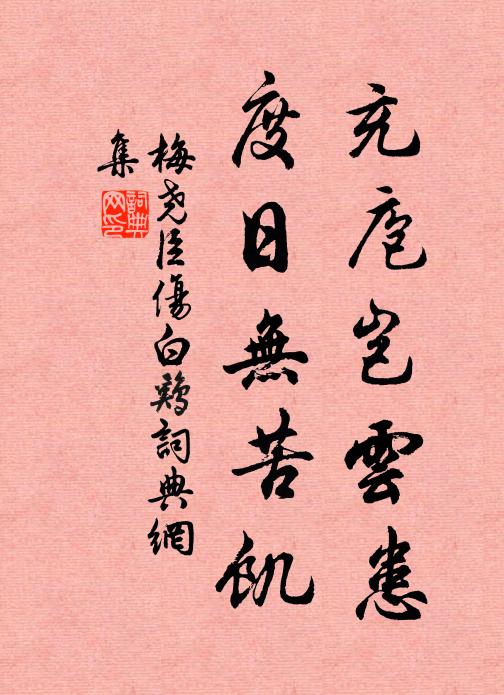 充庖岂雲患
度日無苦飢
梅堯臣傷白鷄詞典網
集
詞典
网印